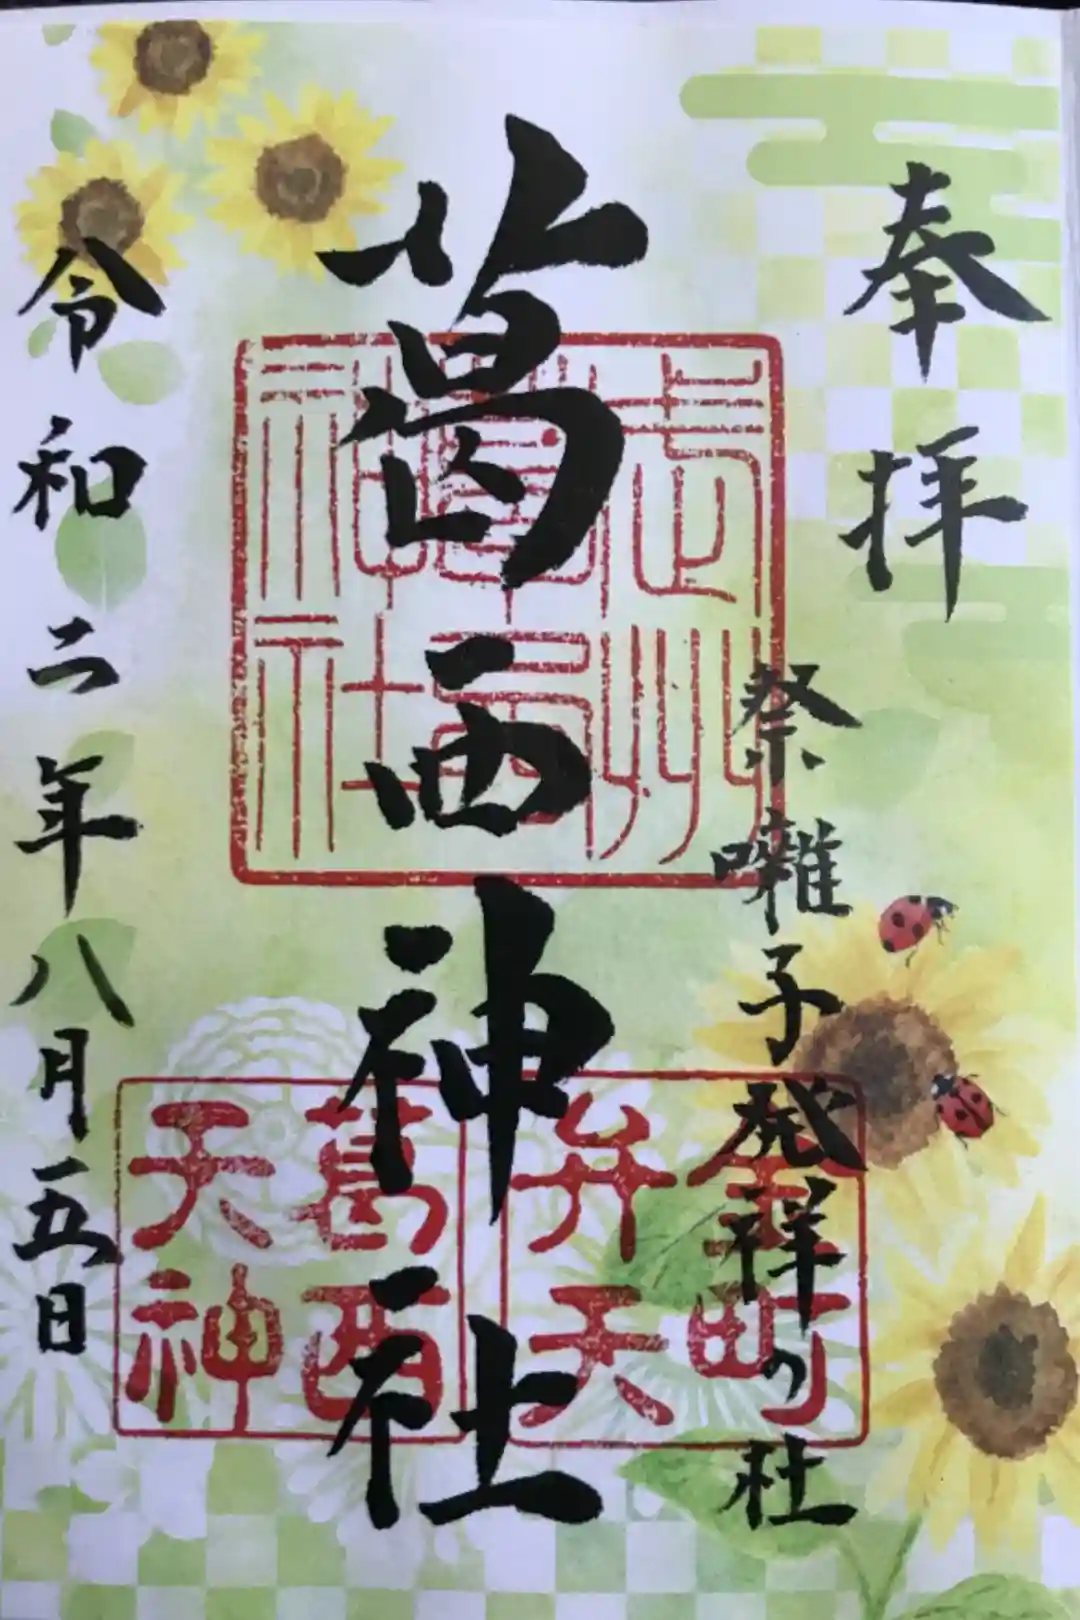 奉拝
祭囃子発祥の社
葛西神社
令和二年八月五日
武州
葛西
神社
金町
弁天
葛西
天神